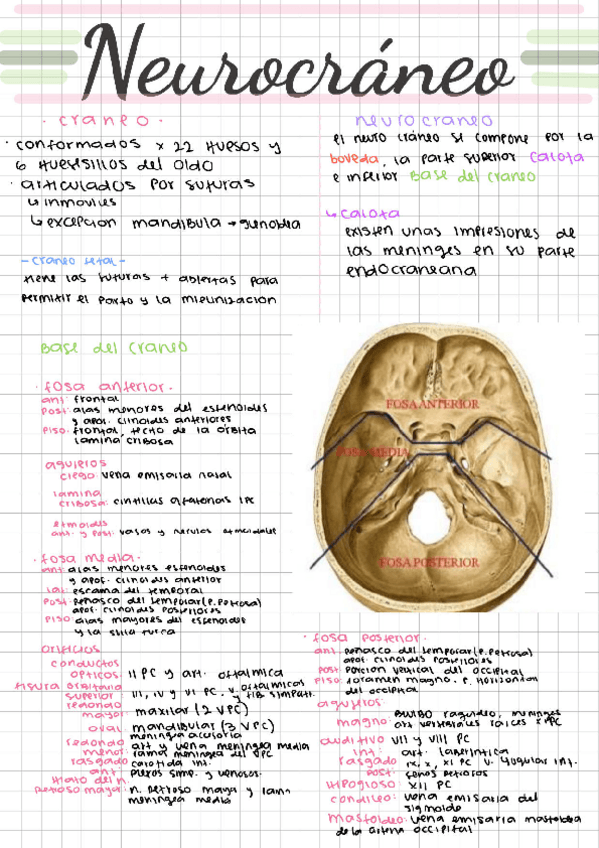 Neurocráneo
· craneo ·
· conformados x 22 huesos y
6 huesisillos del oido
· articulados por suturas
↳ inmoviles
↳ excepcion mandibula →
- craneo fetal -
tiene las suturas + abiertas para
permitir el parto y la
neurocraneo
el neuro cráneo se compone por la
boveda, la parte superior calota
e inferior Base del craneo
↳ calota
existen unas impresiones de
las meninges en su parte
endocraneana
Base del craneo
· fosa anterior ·
ant: frontal
post: alas menores del esfenoides
y apof. clinoides anteriores
Piso: frontal, techo de la orbita
lamina cribosa
agujeros
ciego: vena emisaria nasal
lamina
cribosa: cintillas olfatorias I PC
etmoides
ant. y post: vasos y nervios etmoidales
· fosa media ·
ant: alas menores esfenoides
y apof. clinoides anterior
lat: escama del temporal
Post: Peñasco del temporal (P. Petrosa)
apof. clinoides posteriores
Piso: alas mayores del esfenoides
y la silla turca
orificios
conductos
opticos: II PC y art. oftalmica
fisura orbitaria
superior III, IV y VI PC. v. oftalmicas
redondo
mayor: maxilar (2 V PC)
oval: mandibular (3 V PC)
meningea accesoria
redondo art y vena meningea media
menor: ramo meningea del V PC
rasgado carotida int.
ant: plexos simp. y venosos.
Hiato del n.
Petroso mayor: n. Petroso mayor y
meningea media
FOSA ANTERIOR
FOSA MEDIA
FOSA POSTERIOR
· fosa posterior ·
ant: peñasco del temporal (P. Petrosa)
apof. clinoides posteriores
post: porcion vertical del occipital
Piso: foramen magno. P. horizontal
del occipital
agujeros:
magno: Bulbo raquideo, meninges
art vertebrales raices XI PC
auditivo VII y VIII PC
int: art. laberintica
rasgado IX, X, XI PC v. yugular int.
post: senos petrosos
hipogloso: XII PC
condileo: vena emisaria del
sigmoide
mastoideo: vena emisaria mastoidea
de la arteria occipital